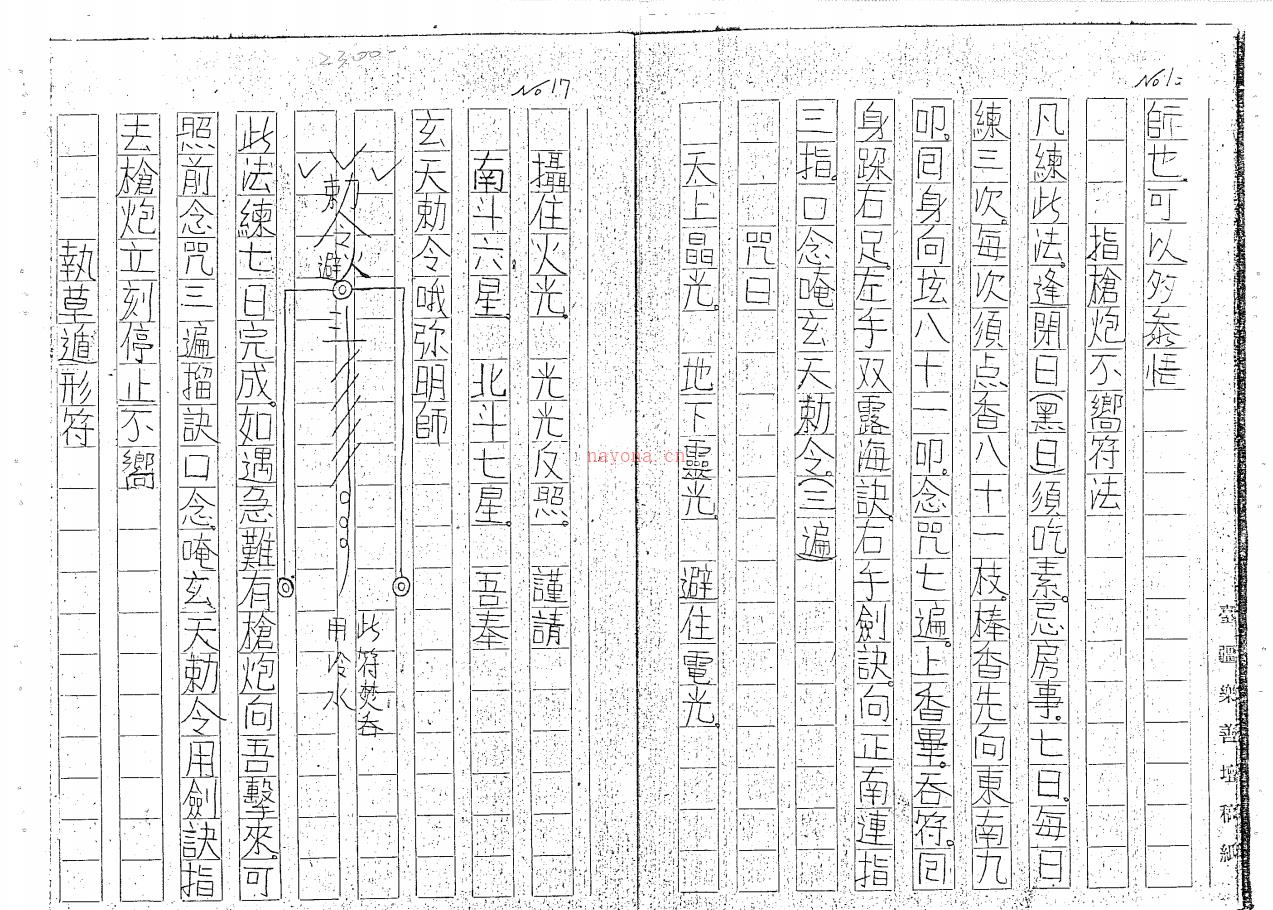 師也.可以多參悟
指槍炮不嚮符法
凡練此法.逢閉日(黑日)須吃素.忌房事.七日.每日
練三次.每次須点香八十一枝.棒香先向東南九
叩.回身向垓八十一叩.念咒七遍.上香畢.吞符.回
身跺右足.左手双露海訣.右手劍訣.向正南連指
三指.口念唵玄天勅令.(三遍)
咒曰
天上晶光. 地下靈光. 避住電光.
No 17
攝住火光. 光光反照. 謹請
南斗六星. 北斗七星. 吾奉
玄天勅令哦弥明師
勅令
避火
此符焚吞
用冷水
此法練七日完成.如遇急難有槍炮向吾擊來.可
照前念咒三遍.搯訣口念.唵玄天勅令用劍訣指
去槍炮立刻停止不嚮
執草遁形符
臺疆樂善壇稿紙
2300-
nayona.cn